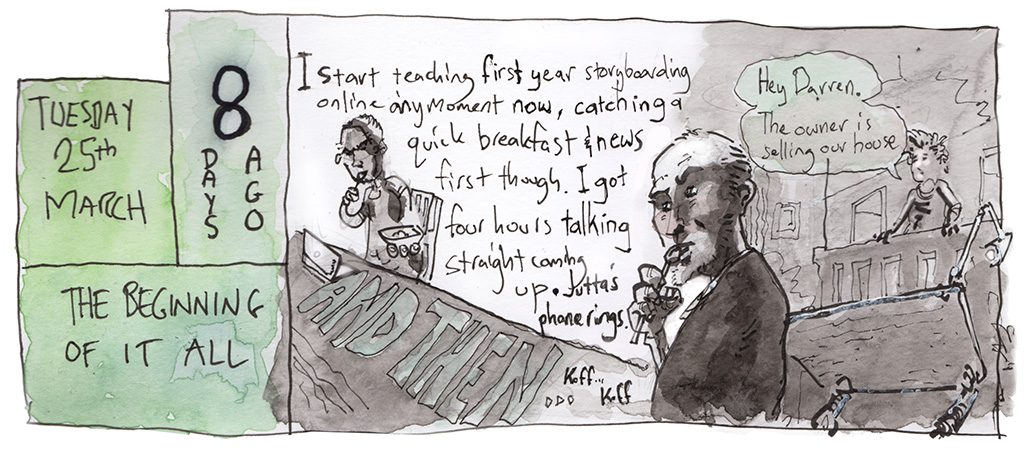 TUESDAY
25th
MARCH
8
DAYS
AGO
THE BEGINNING
OF IT ALL
I start teaching first year storyboarding
online anymoment now, catching a
quick breakfast & news
first though. I got
four hours talking
straight coming
up. Jutta's
phone rings.
AND THEN
Koff...
Koff
Hey Darren.
The owner is
selling our house